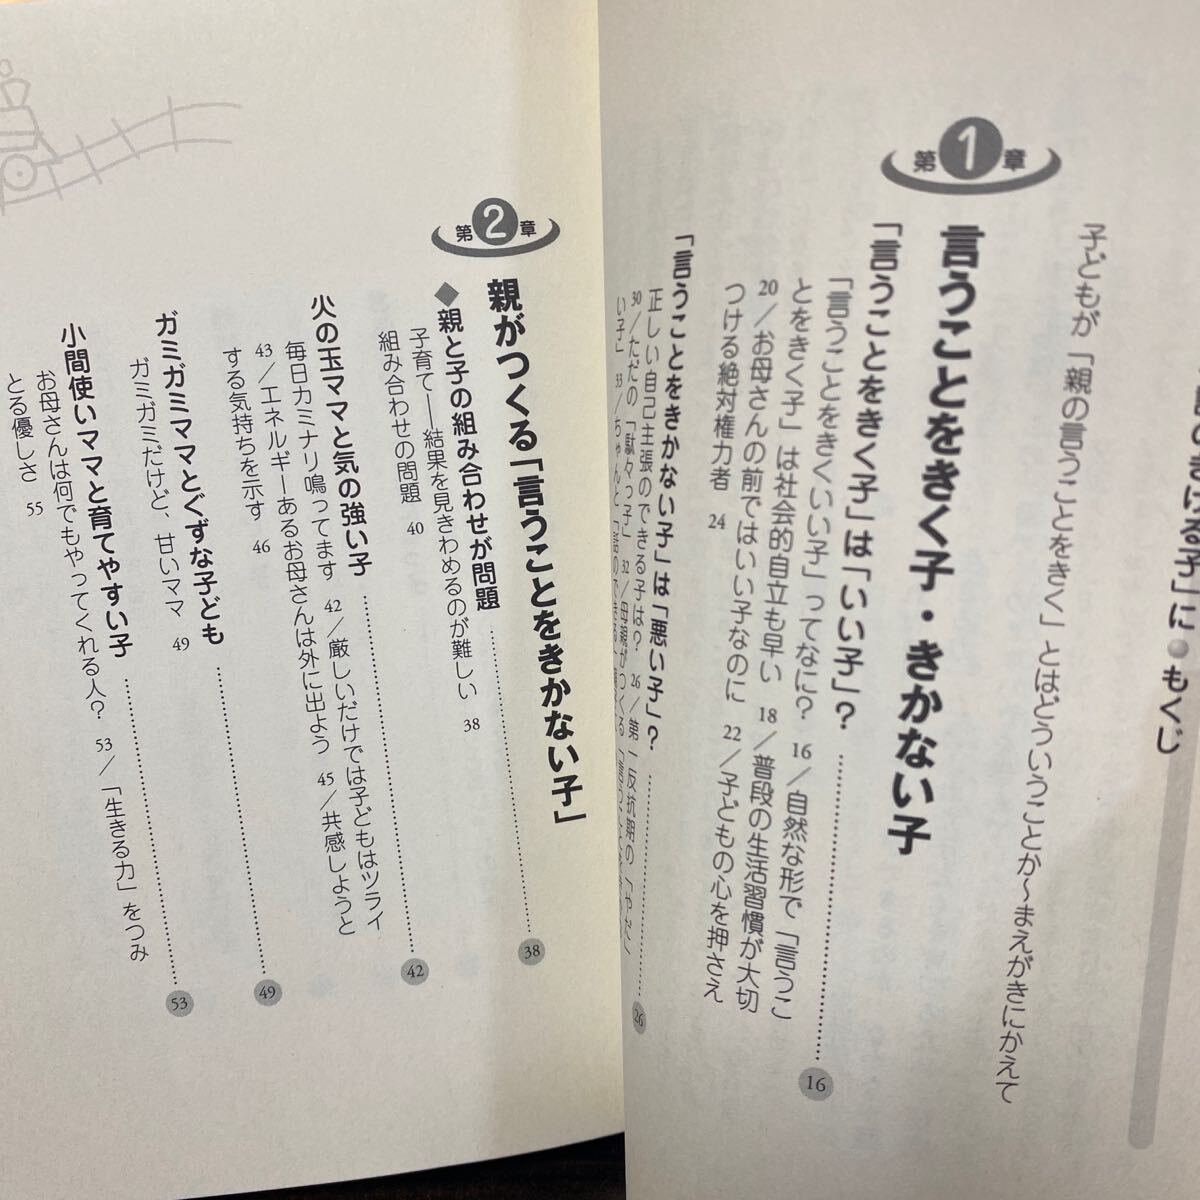 のきける子」に●もくじ
子どもが「親の言うことをきく」とはどういうことか〜まえがきにかえて
第1章
言うことをきく子・きかない子
「言うことをきく子」は「いい子」？ 16
「言うことをきくいい子」ってなに？ 16／自然な形で「言うこ
とをきく子」は社会的自立も早い 18／普段の生活習慣が大切
20／お母さんの前ではいい子なのに 22／子どもの心を押さえ
つける絶対権力者 24
「言うことをきかない子」は「悪い子」？ 26
正しい自己主張のできる子は？ 26／第一反抗期の「やだ」
30／ただの「駄々っ子」 32／母親がつくる
い子」 33／ちゃんと
第2章
親がつくる「言うことをきかない子」
◆親と子の組み合わせが問題 38
子育て――結果を見きわめるのが難しい 38
組み合わせの問題 40
火の玉ママと気の強い子 42
毎日カミナリ鳴ってます 42／厳しいだけでは子どもはツライ
43／エネルギーあるお母さんは外に出よう 45／共感しようと
する気持ちを示す 46
ガミガミママとぐずな子ども 49
ガミガミだけど、甘いママ 49
小間使いママと育てやすい子 53
お母さんは何でもやってくれる人？ 53／「生きる力」をつみ
とる優しさ 55